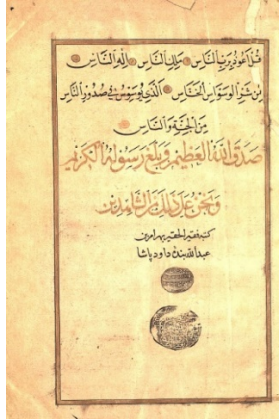 قل اعوذ برب الناس ملك الناس اله الناس
من شر الوسواس الخناس الذي يوسوس في صدور الناس
من الجنة والناس
صدق الله العظيم وبلغ رسوله الكريم
ونحن على ذلك من الشاهدين
كتبه فقير الحقير بهرام بن
عبدالله بنده داود پاشا